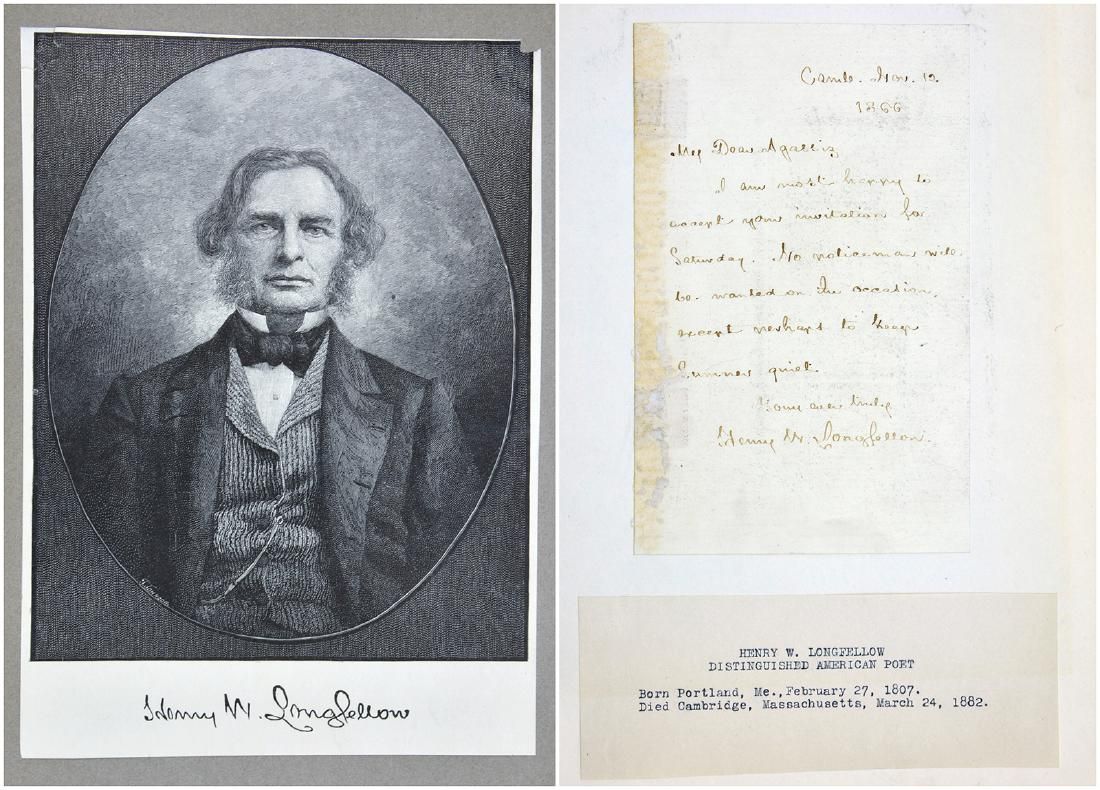 Henry W. Longfellow
Camb. Nov. 12.
1866
My Dear Agassiz
I am most happy to
accept your invitation for
Saturday. No policeman will
be wanted on the occasion,
except perhaps to keep
Sumner quiet.
Yours ever truly
Henry W. Longfellow.
HENRY W. LONGFELLOW
DISTINGUISHED AMERICAN POET
Born Portland, Me.,February 27, 1807.
Died Cambridge, Massachusetts, March 24, 1882.